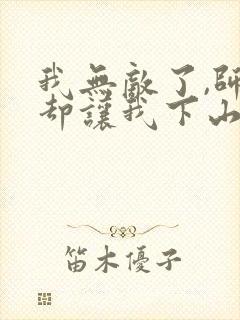 我無敵了,師
却讓我下山
笛木優子